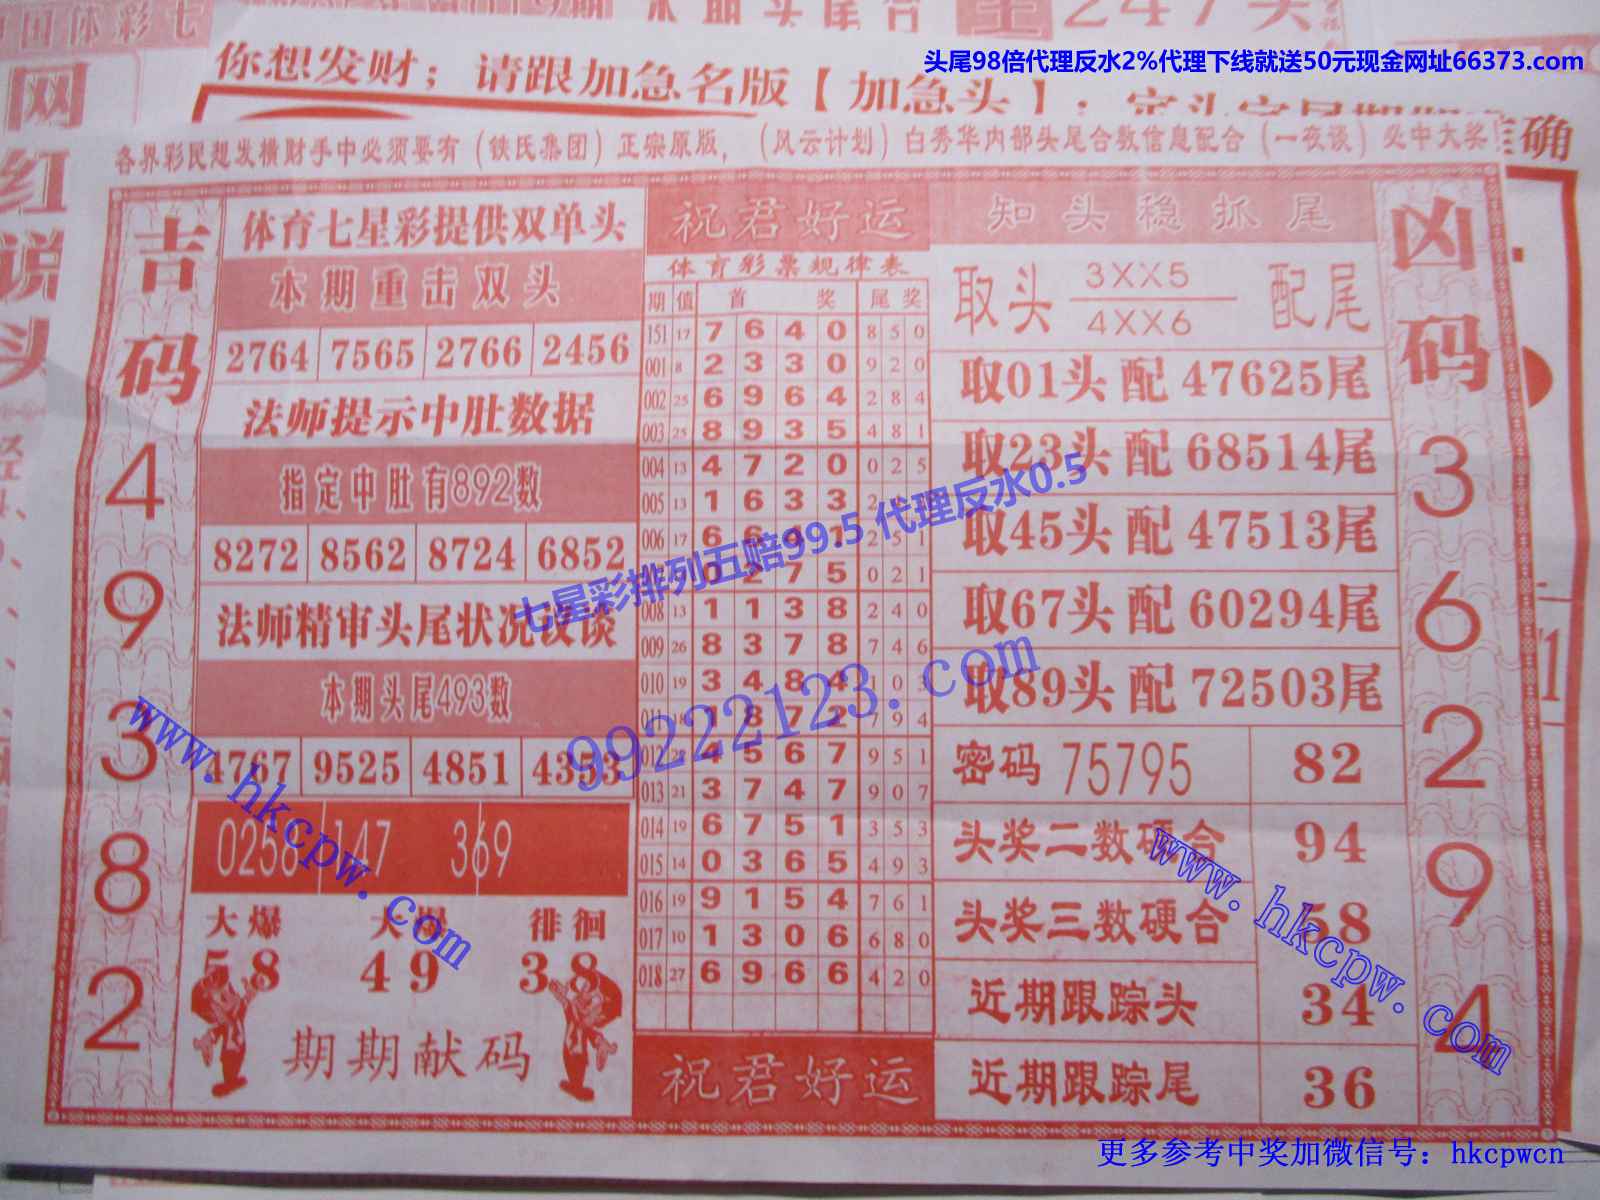 中国体彩七
网
红
说
头
本期头尾合
247头
你想发财；请跟加急名版【加急头】；
准确
头尾98倍代理反水2%代理下线就送50元现金网址66373.com
各界彩民想发横财手中必须要有（铁氏集团）正宗原版，（风云计划）白秀华内部头尾合数信息配合（一夜谈）必中大奖
吉码
4
9
3
8
2
体育七星彩提供双单头
本期重击双头
2764 7565 2766 2456
法师提示中肚数据
指定中肚有892数
8272 8562 8724 6852
法师精审头尾状况设谈
本期头尾493数
4767 9525 4851 4353
0258 147 369
大爆 大爆 徘徊
58 49 38
期期献码
祝君好运
体育彩票规律表
期 值 首 奖 尾 奖
151 17 7 6 4 0 8 5 0
001 8 2 3 3 0 9 2 0
002 25 6 9 6 4 2 8 4
003 25 8 9 3 5 4 8 1
004 13 4 7 2 0 0 2 5
005 13 1 6 3 3 2
006 17 6 6 4 1 2 5
0 2 7 5 0 2 1
008 13 1 1 3 8 2 4 0
009 26 8 3 7 8 7 4 6
010 19 3 4 8 4 1 0 3
011 18 1 8 7 2 7 9 4
012 22 4 5 6 7 9 5 1
013 21 3 7 4 7 9 0 7
014 19 6 7 5 1 3 5 3
015 14 0 3 6 5 4 9 3
016 19 9 1 5 4 7 6 1
017 10 1 3 0 6 6 8 0
018 27 6 9 6 6 4 2 0
祝君好运
知头稳抓尾
取头 3XX5 配尾
4XX6
取01头 配 47625尾
取23头 配 68514尾
取45头 配 47513尾
取67头 配 60294尾
取89头 配 72503尾
密码 75795 82
头奖二数硬合 94
头奖三数硬合 58
近期跟踪头 34
近期跟踪尾 36
凶码
3
6
2
9
4
七星彩排列五赔99.5 代理反水0.5
99222123.com
www.hkcpw.com
www.hkcpw.com
更多参考中奖加微信号：hkcpwcn